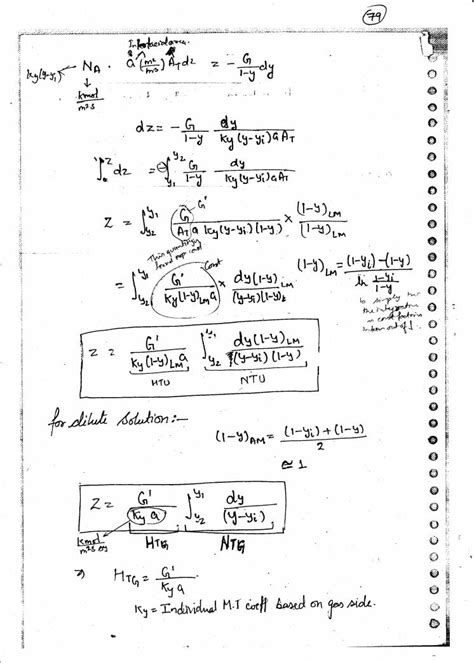 79
Interfacial area
ky(y-yi) ← NA · a (m²/m³) AT dz = - G/(1-y) dy
↓
kmol/m²s
dz = - G/(1-y) dy/(ky(y-yi) a AT)
∫₀^Z dz = ⊖∫_{y1}^{y2} G/(1-y) dy/(ky(y-yi) a AT)
Z = ∫_{y2}^{y1} G/(AT a ky(y-yi)(1-y)) × (1-y)LM/(1-y)LM
G'
This quantity found exp const
= ∫_{y2}^{y1} G'/(ky(1-y)LM a) × dy(1-y)LM/((y-yi)(1-y))
Const
(1-y)LM = ((1-yi)-(1-y))/(ln (1-yi)/(1-y))
to simplify
the integration
Z = G'/(ky(1-y)LM a) ∫_{y2}^{y1} dy(1-y)LM/((y-yi)(1-y))
HTU NTU
for dilute solution:-
(1-y)AM = ((1-yi)+(1-y))/2
≅ 1
Z = G'/(ky a) ∫_{y2}^{y1} dy/(y-yi)
kmol/m²s HTG NTG
⇒ HTG = G'/(ky a)
Ky = Individual M.T coeff based on gas side.